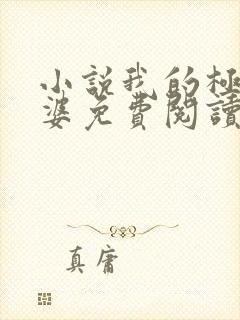 小説我的極
婆免費閱讀
真庸